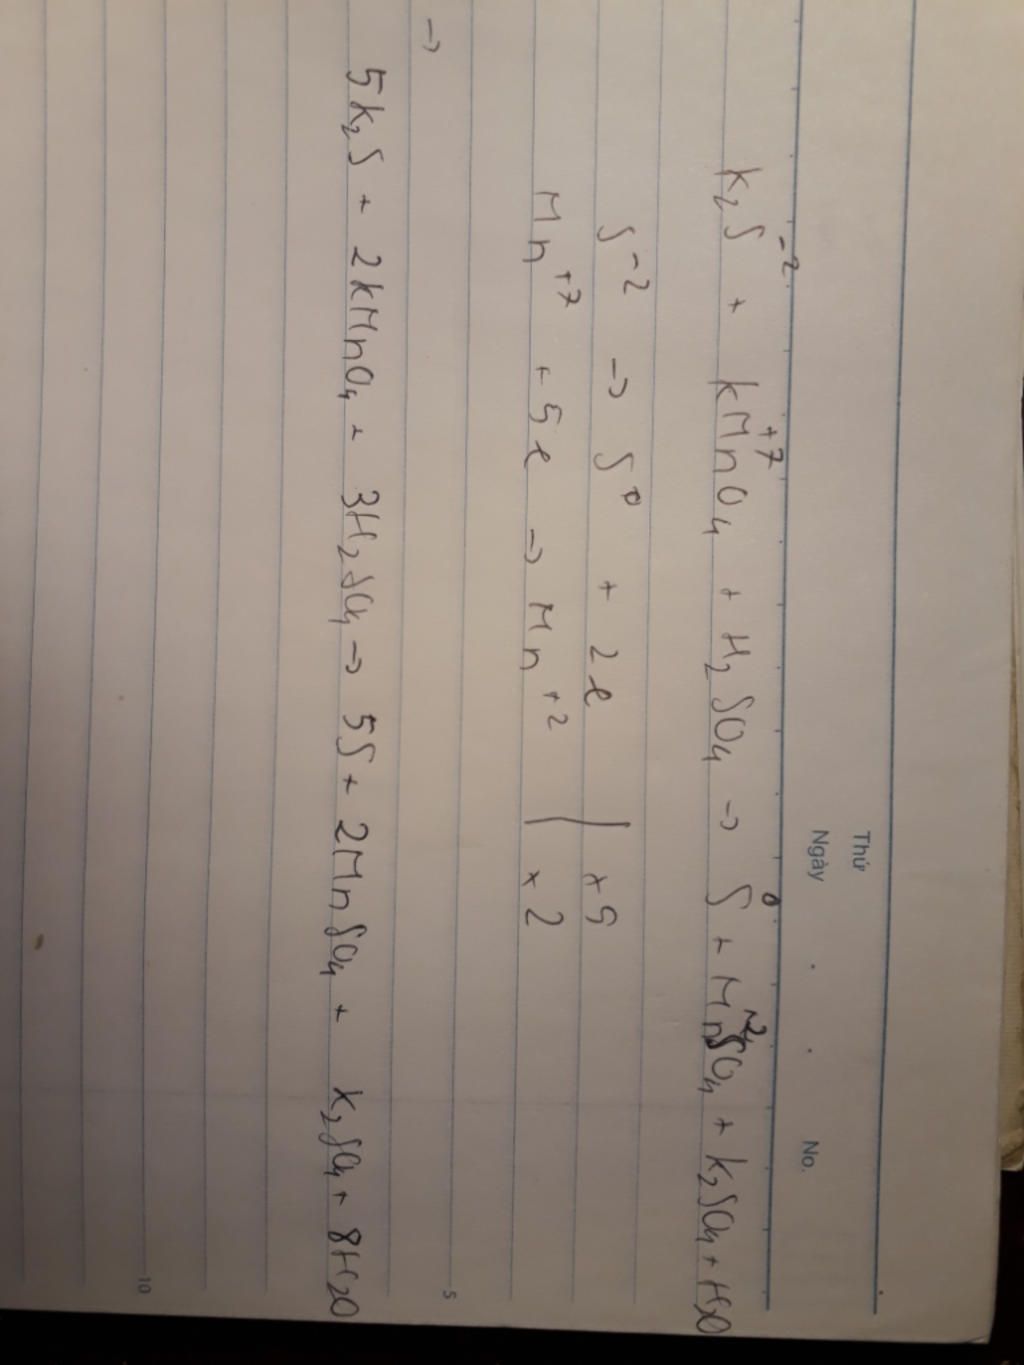 Thứ
Ngày . . No.
K₂S⁻² + KMn⁺⁷O₄ + H₂SO₄ → S⁰ + Mn⁺²SO₄ + K₂SO₄ + H₂O
S⁻² → S⁰ + 2e | x5
Mn⁺⁷ + 5e → Mn⁺² | x2
5
→
5K₂S + 2KMnO₄ + 3H₂SO₄ → 5S + 2MnSO₄ + K₂SO₄ + 8H₂O
10